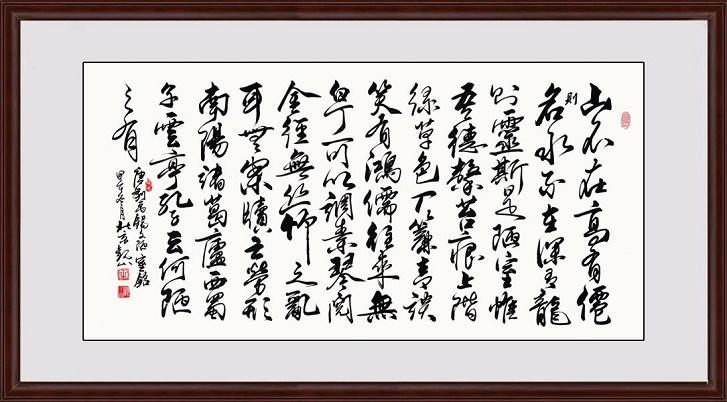 山不在高有僊
則名水不在深有龍
则靈斯是陋室惟
吾德馨苔痕上階
綠草色入簾青談
笑有鴻儒往来無
白丁可以調素琴閱
金經無絲竹之亂
耳無案牘之勞形
南陽諸葛廬西蜀
子雲亭孔子云何陋
之有
唐劉禹錫文陋室銘
甲午冬月